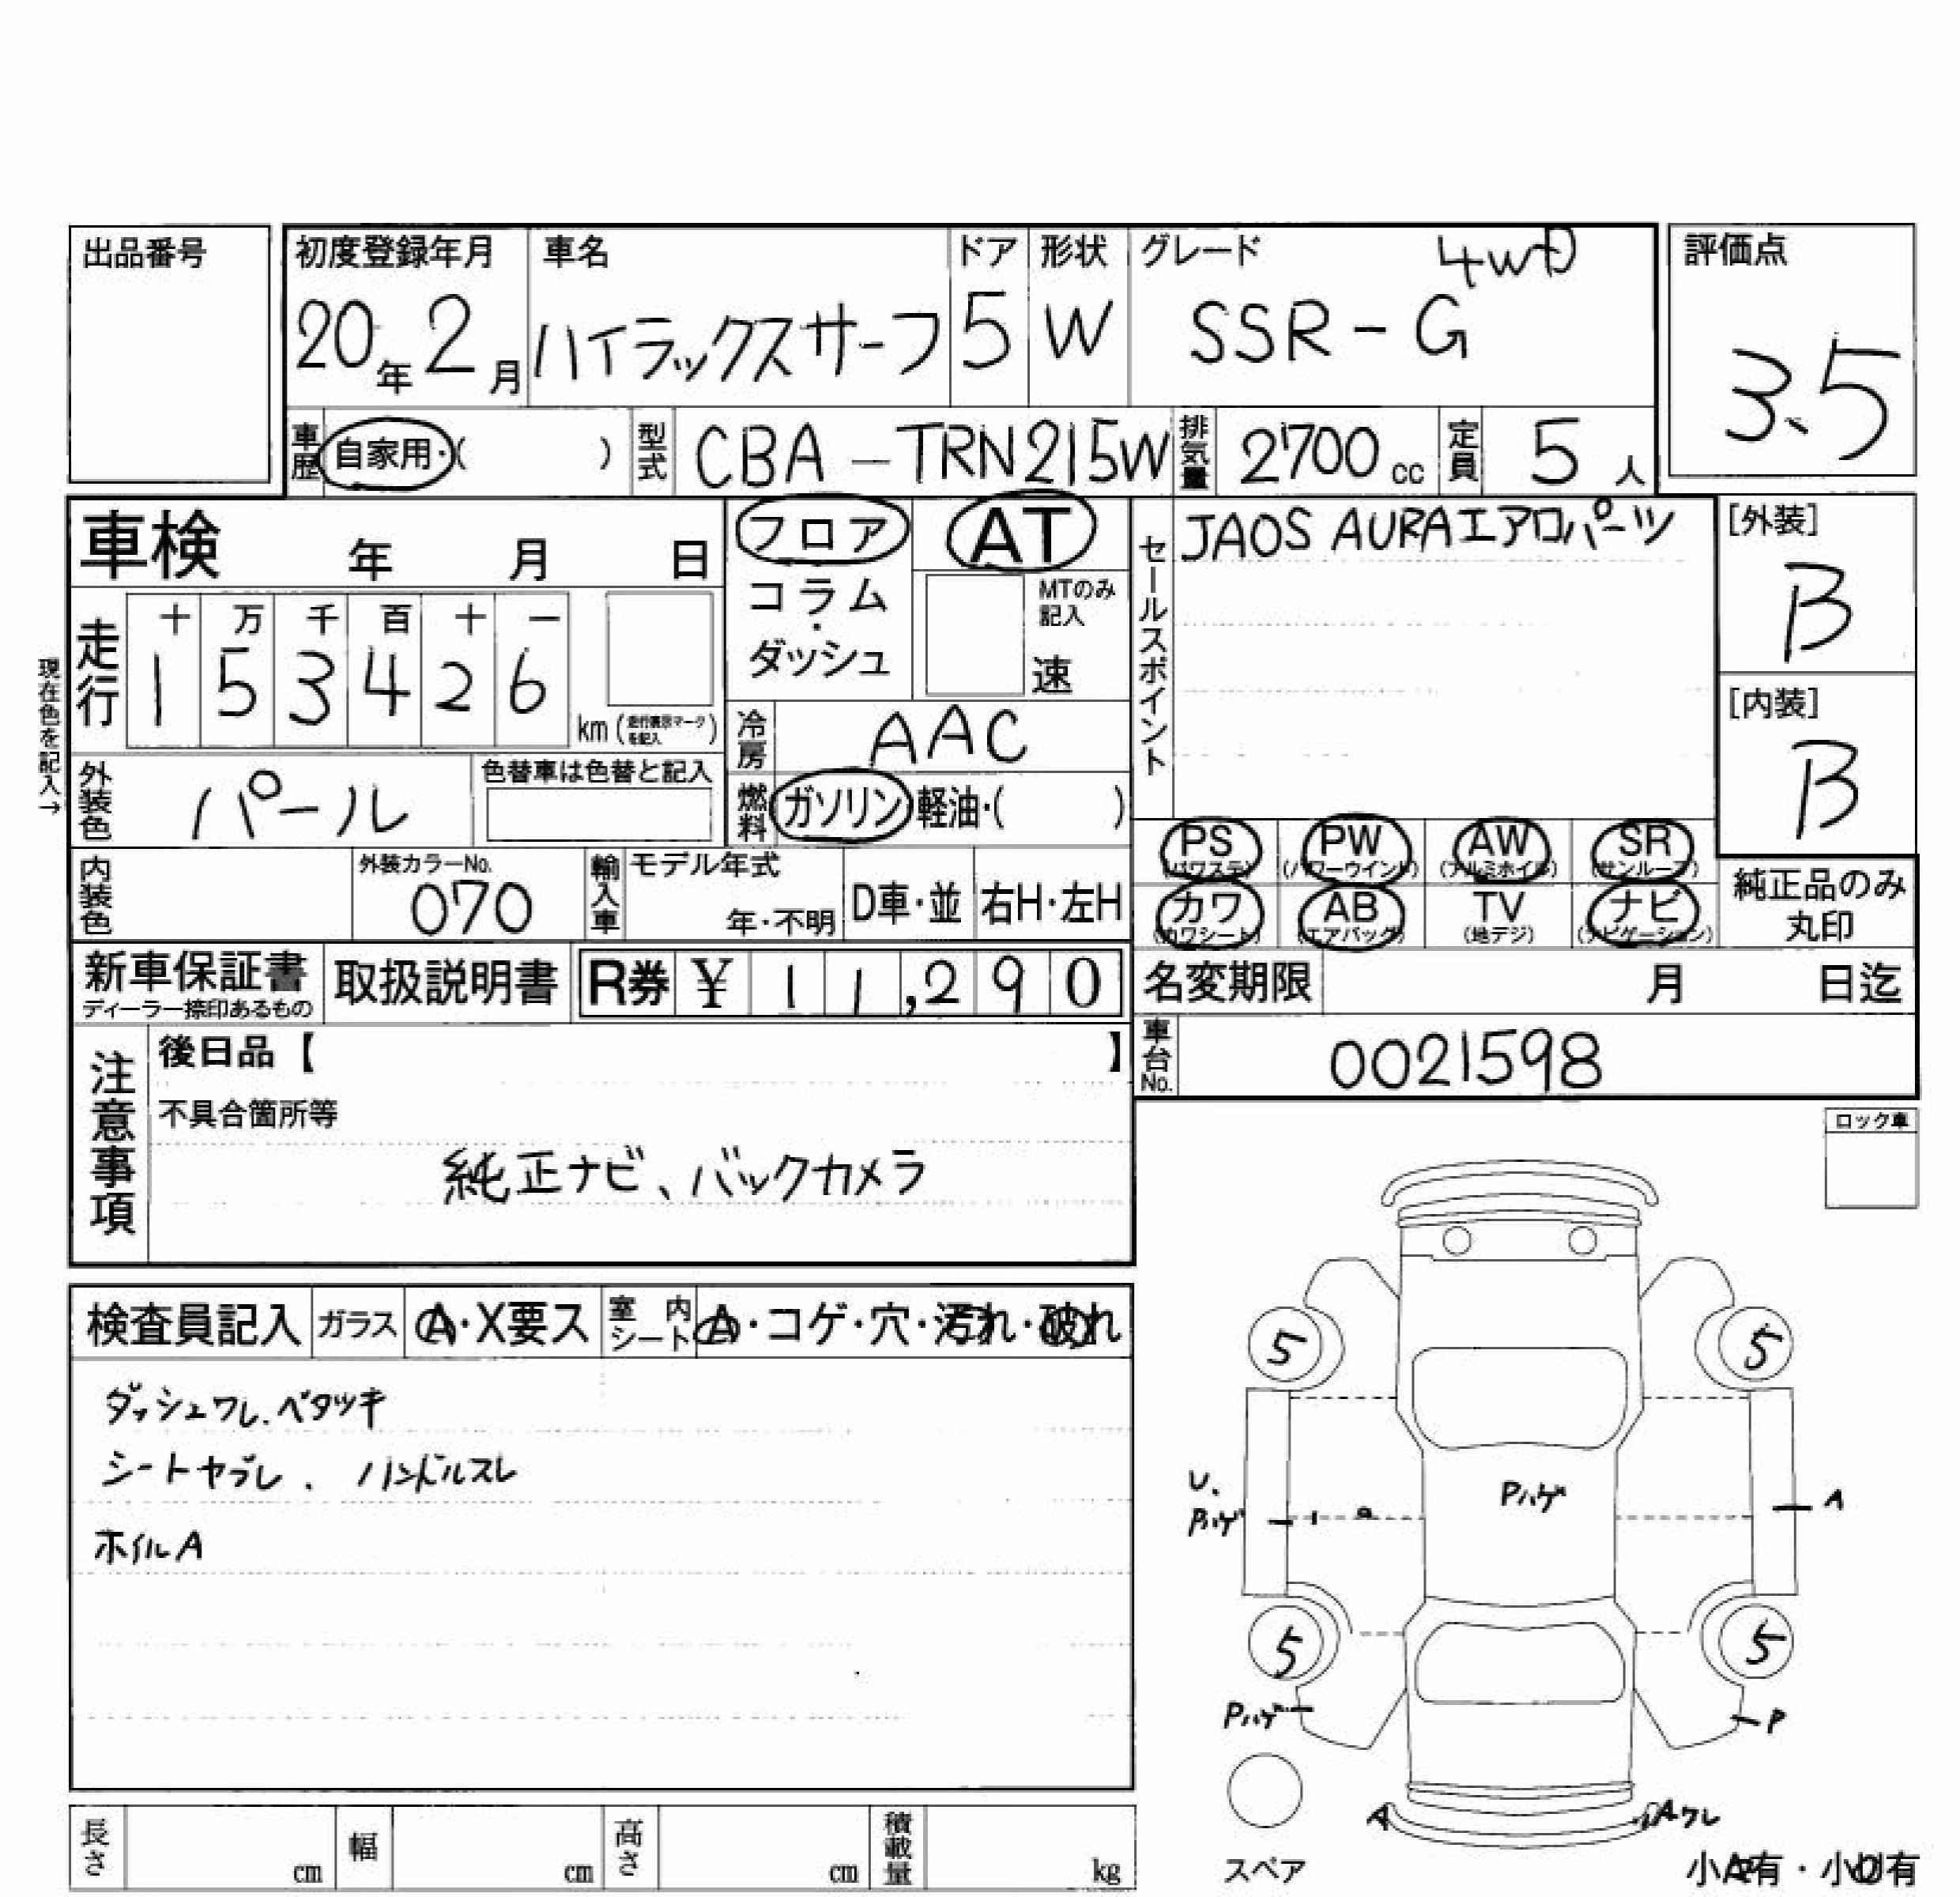 出品番号
初度登録年月 車名 ドア 形状 グレード 4WD 評価点
20年2月 ハイラックスサーフ 5 W SSR-G
3.5
車歴 自家用・( ) 型式 CBA-TRN215W 排気量 2700cc 定員 5人
車検 年 月 日
フロア AT
コラム・ダッシュ
MTのみ記入
速
セールスポイント JAOS AURAエアロパーツ
[外装]
B
[内装]
B
現在色を記入→
走行 十 万 千 百 十 一
1 5 3 4 2 6
km(走行表示マークを記入)
冷房 AAC
外装色 パール 色替車は色替と記入
燃料 ガソリン 軽油・( )
PS PW AW SR
(パワステ) (パワーウインド) (アルミホイル) (サンルーフ)
カワ AB TV ナビ
(カワシート) (エアバッグ) (地デジ) (ナビゲーション)
純正品のみ
丸印
内装色 外装カラーNo. 070 輸入車 モデル年式 年・不明 D車・並 右H・左H
新車保証書
ディーラー捺印あるもの
取扱説明書 R券 ¥ 11,290
名変期限 月 日迄
車台No. 0021598
注意事項
後日品【 】
不具合箇所等
純正ナビ、バックカメラ
ロック車
検査員記入 ガラス A・X要ス 室内シート A・コゲ・穴・汚れ・破れ
ダッシュワレ.ベタツキ
シートヤブレ. ハンドルスレ
ホイルA
5 5
U.
Pハゲ
Pハゲ
A
5 5
Pハゲ
P
A
Aワレ
スペア
小A有・小U有
長さ cm 幅 cm 高さ cm 積載量 kg